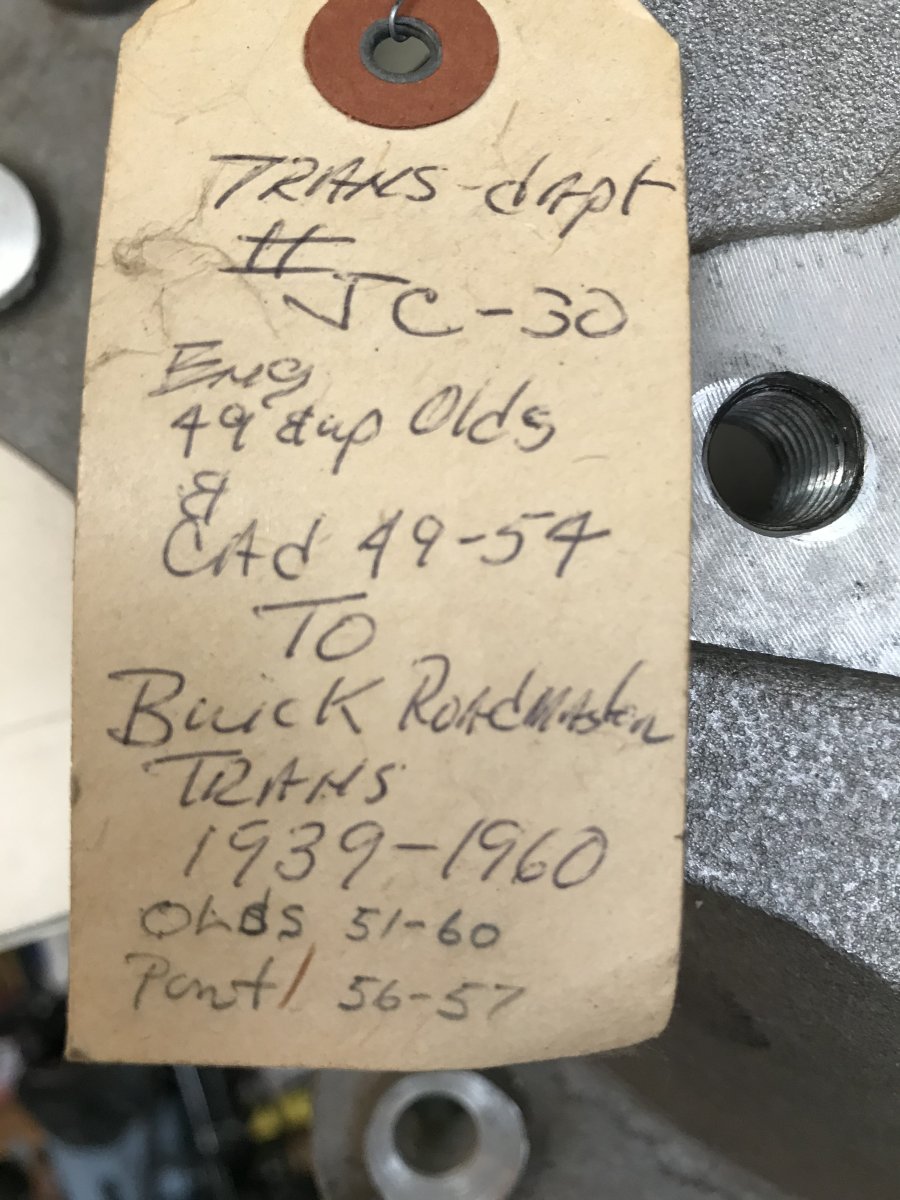 TRANS-dApt
#
JC-30
Eng
49 & up Olds
&
CAd 49-54
TO
Buick Roadmaster
TRANS
1939-1960
OLDS 51-60
Pont 56-57